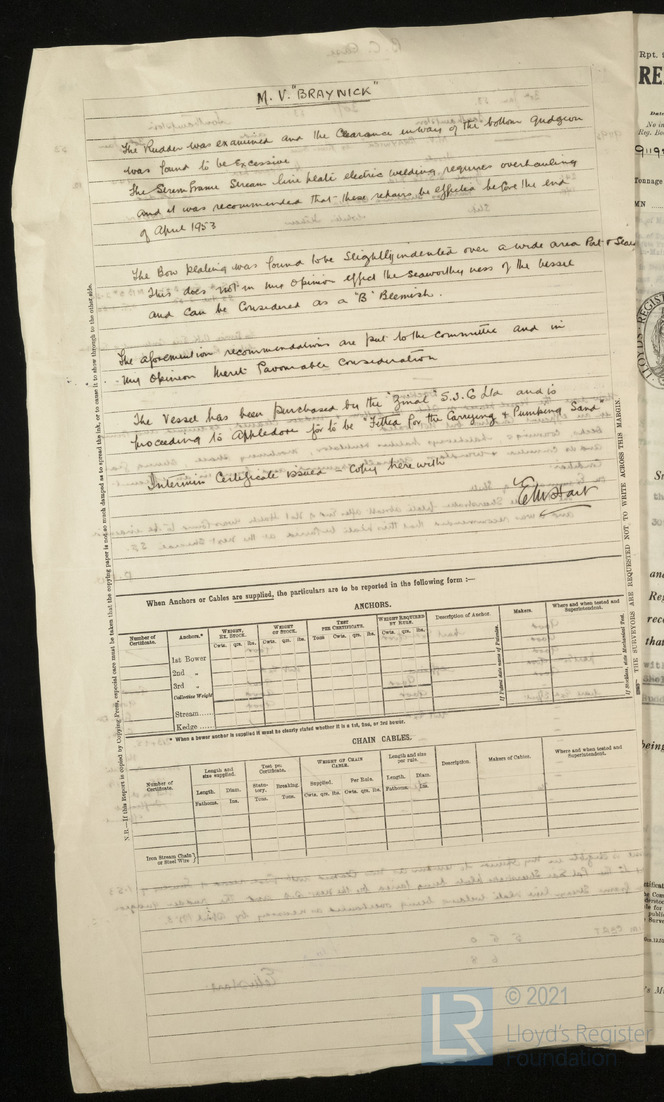 M. V. "BRAYNICK"
The Rudder was examined and the Clearance in way of the bottom gudgeon
was found to be Excessive
The Stern Frame Stream line plate electric welding requires overhauling
and it was recommended that these repairs be effected before the end
of April 1953
The Bow plating was found to be Slightly indented over a wide area Port &
This does not in my Opinion effect the seaworthyness of the Vessel
and can be Considered as a "B" Blemish.
The aforemention recommendations are put to the committee and in
my Opinion Merit Favourable Consideration
The Vessel has been purchased by the S.S. Co Ltd and is
proceeding to Appledore for to be "Fitted for the Carrying & Pumping Sand"
Interim Certificate issued - Copy herewith
N.B.—If this Report is copied by Copying Press, especial care must be taken that the copying paper is not so much damped as to spread the ink, or to cause it to show through to the other side.
THE SURVEYORS ARE REQUESTED NOT TO WRITE ACROSS THIS MARGIN.
When Anchors or Cables are supplied, the particulars are to be reported in the following form :—
ANCHORS.
Number of Certificate.
Anchors.*
WEIGHT, EX. STOCK.
WEIGHT OF STOCK.
TEST PER CERTIFICATE.
WEIGHT REQUIRED BY RULE.
Description of Anchor.
Makers.
Where and when tested and Superintendent.
Cwts. qrs. lbs.
Cwts. qrs. lbs.
Tons Cwts. qrs. lbs.
Cwts. qrs. lbs.
1st Bower
2nd "
3rd "
Collective Weight
Stream
Kedge
* When a bower anchor is supplied it must be clearly stated whether it is a 1st, 2nd, or 3rd bower.
CHAIN CABLES.
Number of Certificate.
Length and size supplied.
Test per Certificate.
WEIGHT OF CHAIN CABLE.
Length and size per rule.
Description.
Makers of Cables.
Where and when tested and Superintendent.
Length.
Diam.
Statutory.
Breaking
Supplied.
Per Rule.
Length.
Diam.
Fathoms.
Ins.
Tons.
Tons.
Cwts. qrs. lbs.
Cwts. qrs. lbs.
Fathoms.
Ins.
Iron Stream Chain or Steel Wire
LR
© 2021
Lloyd's Register
Foundation